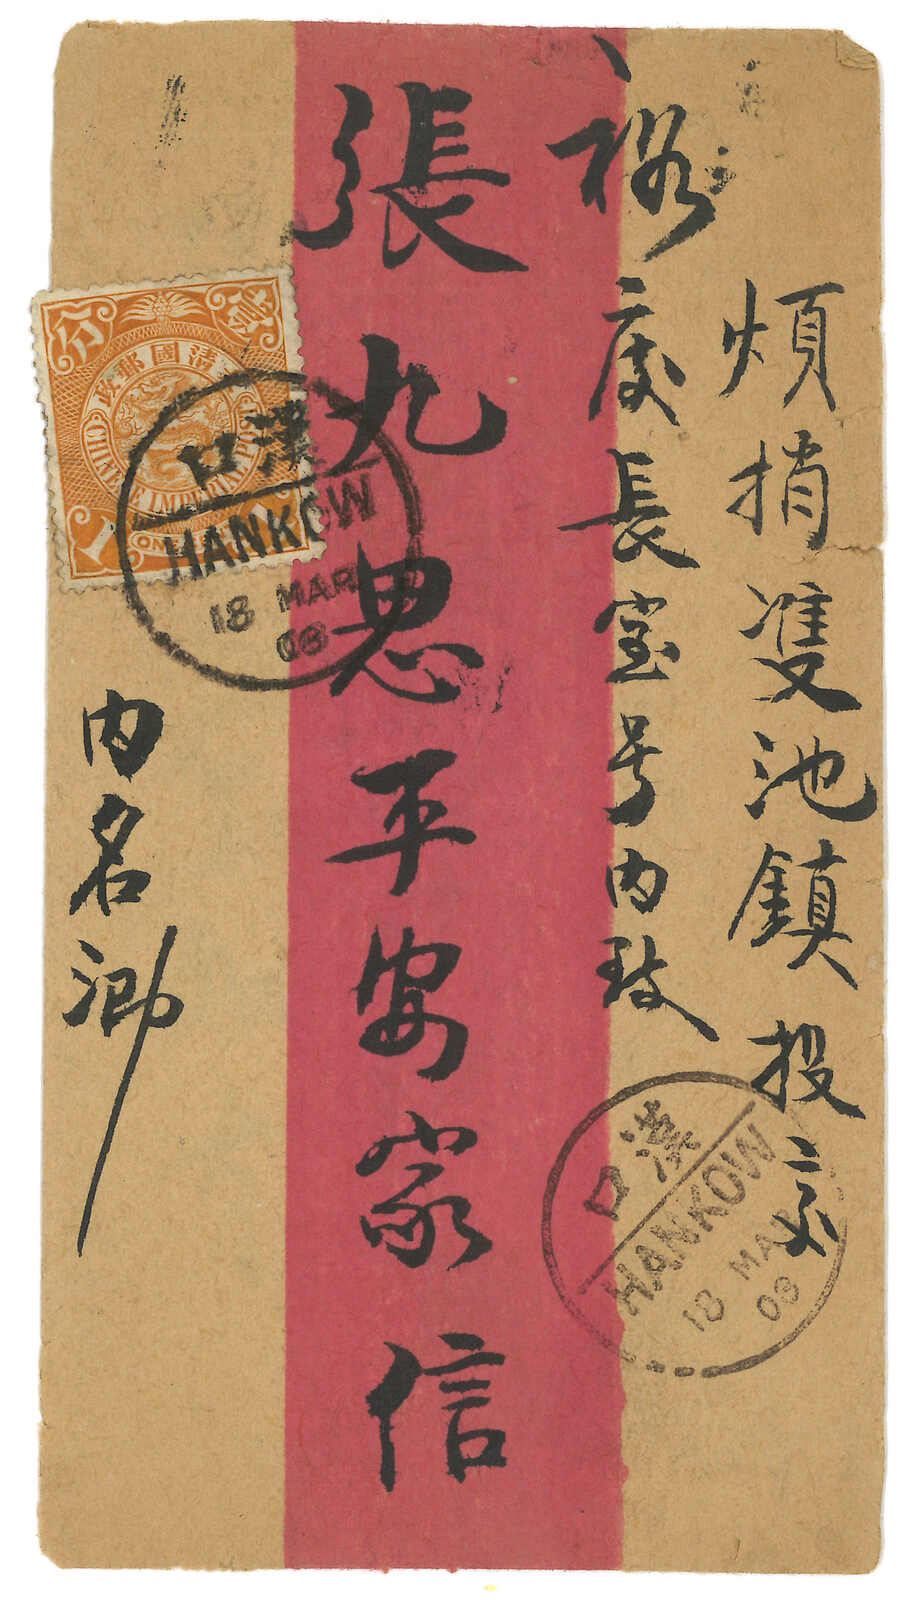 煩捎雙池鎮投交
裕慶長寶号内玫
張九思平安家信
内名泐
壹分
大清國郵政
CHINESE IMPERIAL POST
1
漢口
HANKOW
18 MAR
08
漢口
HANKOW
18 MAR
08